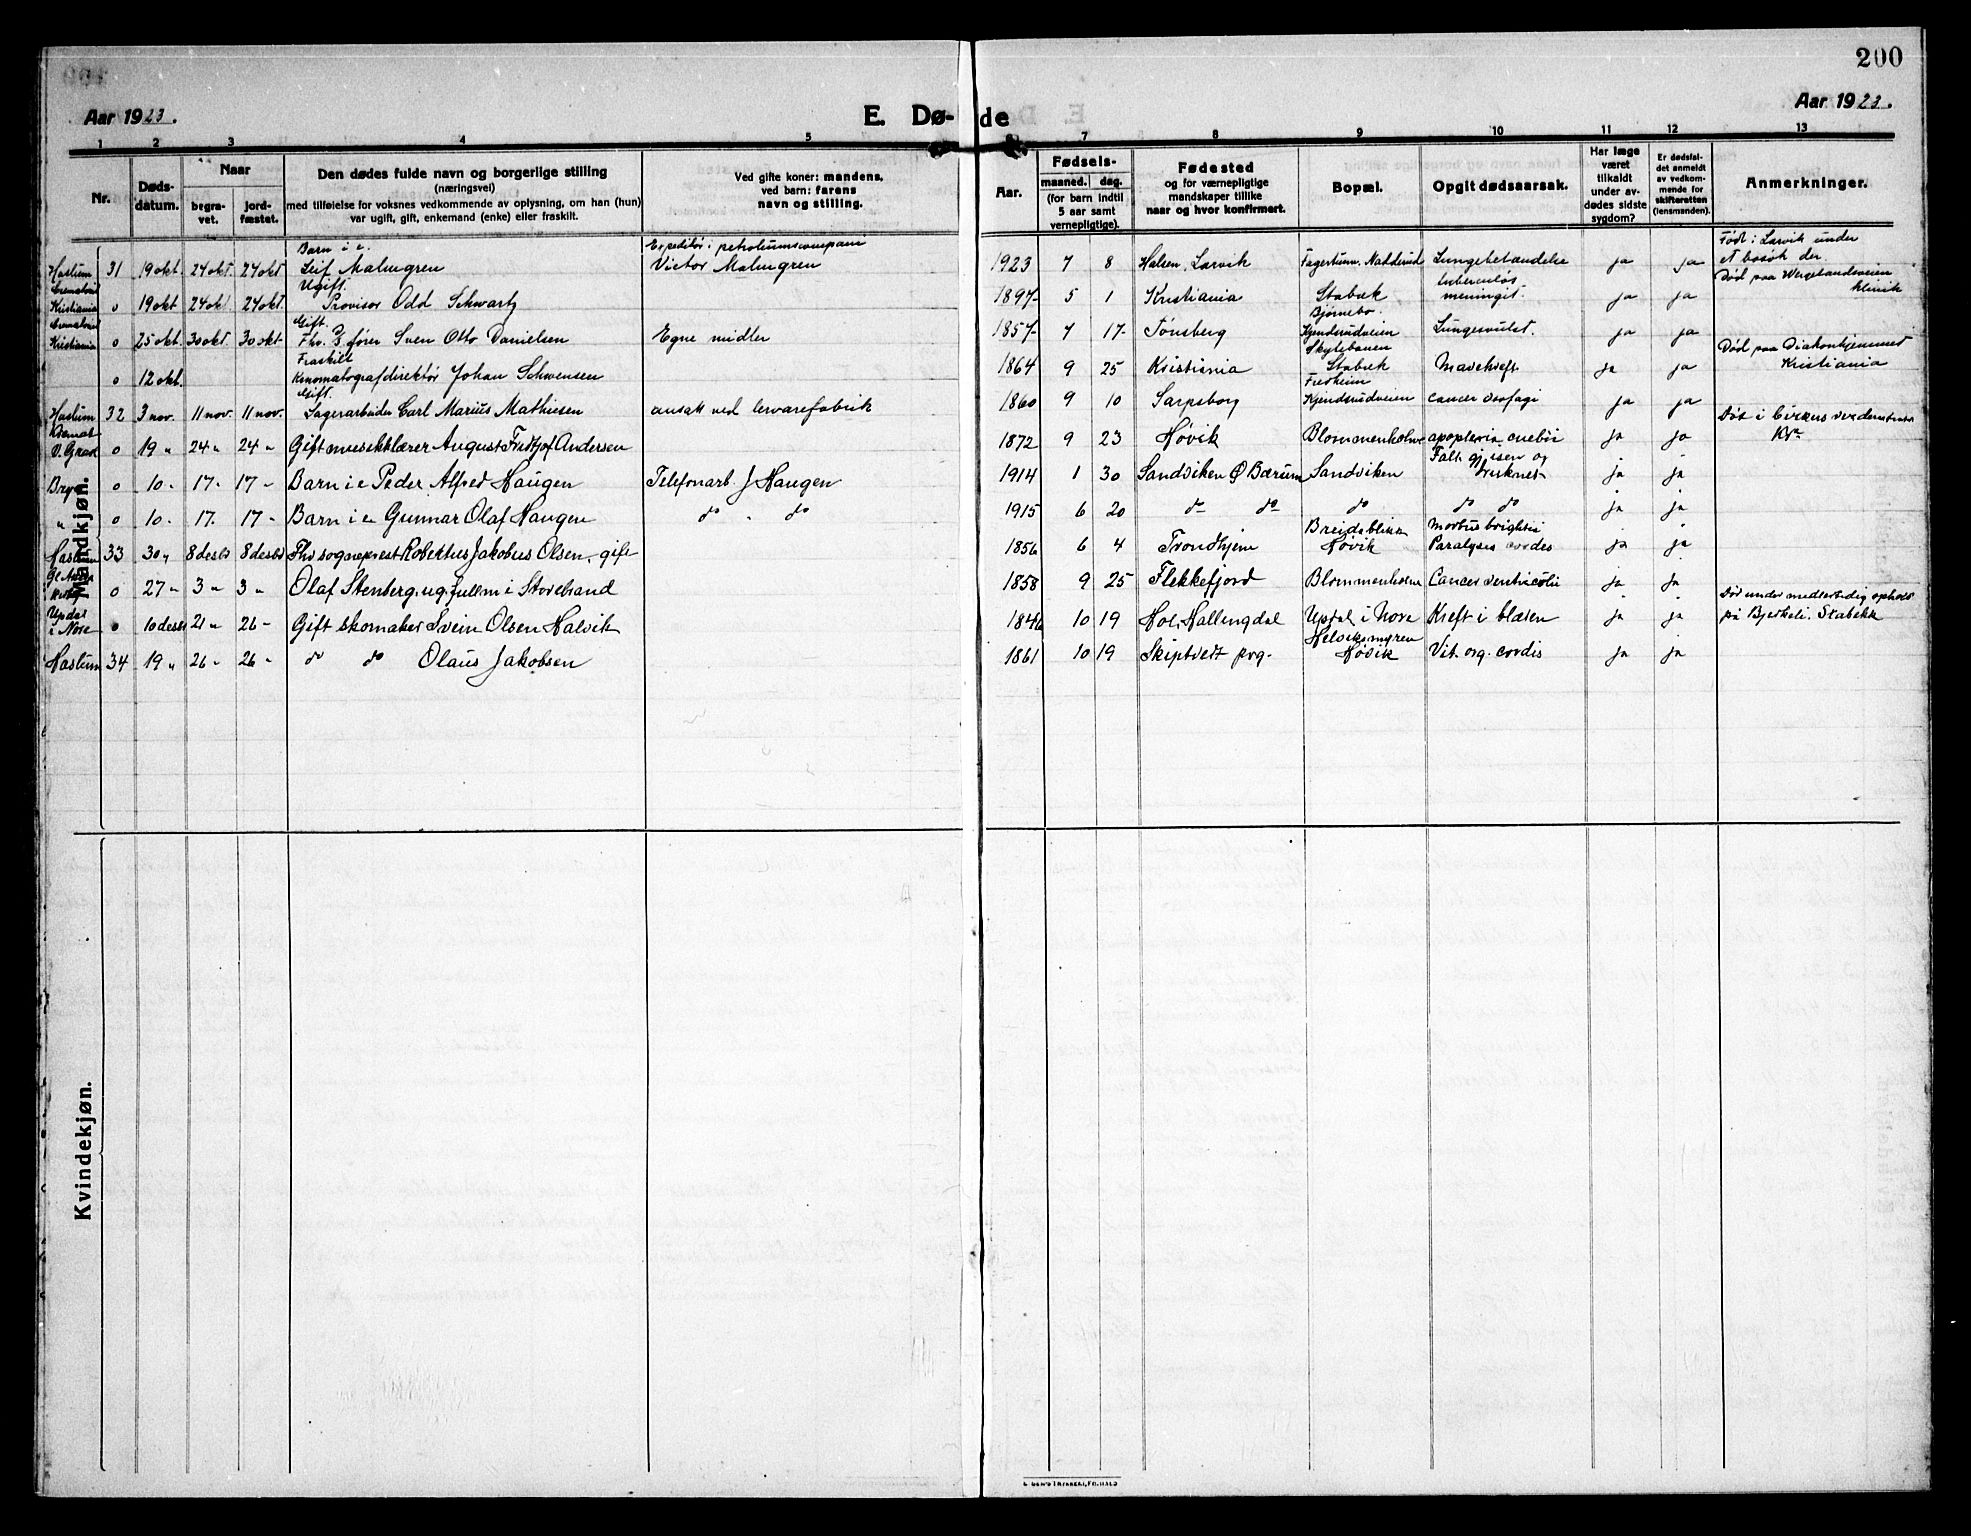 200
Aar 1923.
E. Døde
Aar 1923.
1 2 3 4 5 7 8 9 10 11 12 13
Nr.
Døds-
datum.
Naar
begra-
vet.
jord-
fæstet.
Den dødes fulde navn og borgerlige stilling
(næringsvei)
med tilføielse for voksnes vedkommende av oplysning, om han (hun)
var ugift, gift, enkemand (enke) eller fraskilt.
Ved gifte koner: mandens,
ved barn: farens
navn og stilling.
Aar.
Fødsels-
maaned. dag.
(for barn indtil
5 aar samt
vernepligtige).
Fødested
og for værnepligtige
mandskaper tillike
naar og hvor konfirmert.
Bopæl.
Opgit dødsaarsak.
Har læge
været
tilkaldt
under av-
dødes sidste
sygdom?
Er dødsfal-
det anmeldt
av vedkom-
mende for
skifteretten
(lensmanden).
Anmerkninger.
Mandkjøn.
Barn i e. Expeditør i petroliumscompani Født i Larvik under
Haslum 31 19 okt. 24 okt. 24 okt Leif Malmgren Victor Malmgren 1923 7 8 Halsen, Larvik Fagertun, Nadderud Lungebetændelse ja ja et besøk der.
Crematoriet Ugift. tuberculøs Død paa Wergelandsveien
Kristiania o 19 okt 24 okt. 24 okt. Provisor Odd Schwartz 1897 5 1 Kristiania Stabæk meningit. ja ja klinik
Crematoriet Gift. Bjørnebo.
Kristiania o 25 okt. 30 okt. 30 okt Fhv. fører Sven Otto Danielsen Egne midler 1857 7 17 Tønsberg Kjendsrudveien Lungesvulst. ja ja
Fraskilt Skytebanen Død paa Diakonhjemmet
o 12 okt. Kinomatografdirektør Johan Schwensen 1864 9 25 Kristiania Stabæk Mavekreft. ja ja Kristiania
Gift. Fredheim
Haslum 32 3 nov. 11 nov. 11 nov. Lagerarbeider Carl Marius Mathiesen ansatt ved lervarefabrik 1860 9 10 Sarpsborg Kjendsrudveien cancer oesofagi ja ja Død i Cirkus
Kremat. V. Grav o 19 " 24 " 24 " Gift musiklærer August Fridtjof Andersen 1872 9 23 Høvik Blommenholm apoplexia cerebri ja ja Kra
Falt gj. isen og
Bryn o 10 - 17 - 17 - Barn i e Peder Alfred Haugen Telefonarb. J Haugen 1914 1 30 Sandviken Ø Bærum Sandviken druknet ja ja
" o 10 - 17. 17 - Barn i e Gunnar Olaf Haugen do do 1915 6 20 do do do do do ja ja
Breidablikk Morbus brightii
Haslum 33 30 " 8 desbr 8 desbr Fhv sogneprest Robertus Jakobus Olsen, gift 1856 6 4 Trondhjem Høvik Paralysis cordis ja ja
o 27 " 3 " 3 " Olaf Stenberg, ug, fullm i Storebrand 1858 9 25 Flekkefjord Blommenholm Cancer ventriculi ja ja Død under midlertidig ophold
Updal i Nore o 10 desbr 21 " 26 - Gift skomaker Svein Olsen Halvik 1846 10 19 Hol, Hallingdal Updal i Nore Kreft i blæren ja ja på Bjerkeli. Stabekk
Helviksmyren
Haslum 34 19 " 26 - 26 - do do Olaus Jakobsen 1861 10 19 Skiptvedt prg. Høvik Vit. org. cordis ja ja
Kvindekjøn.